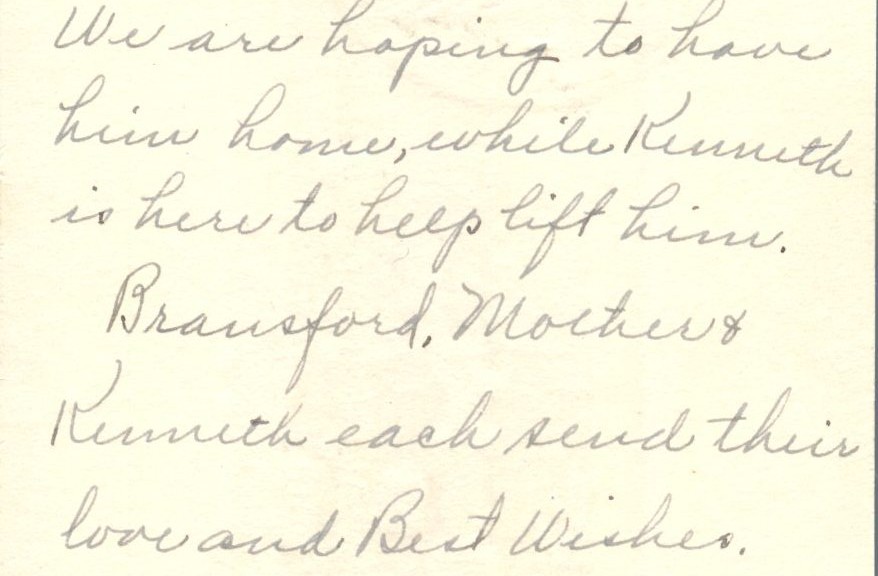 We are hoping to have
him home, while Kenneth
is here to help lift him.
Bransford, Mother &
Kenneth each send their
love and Best Wishes.